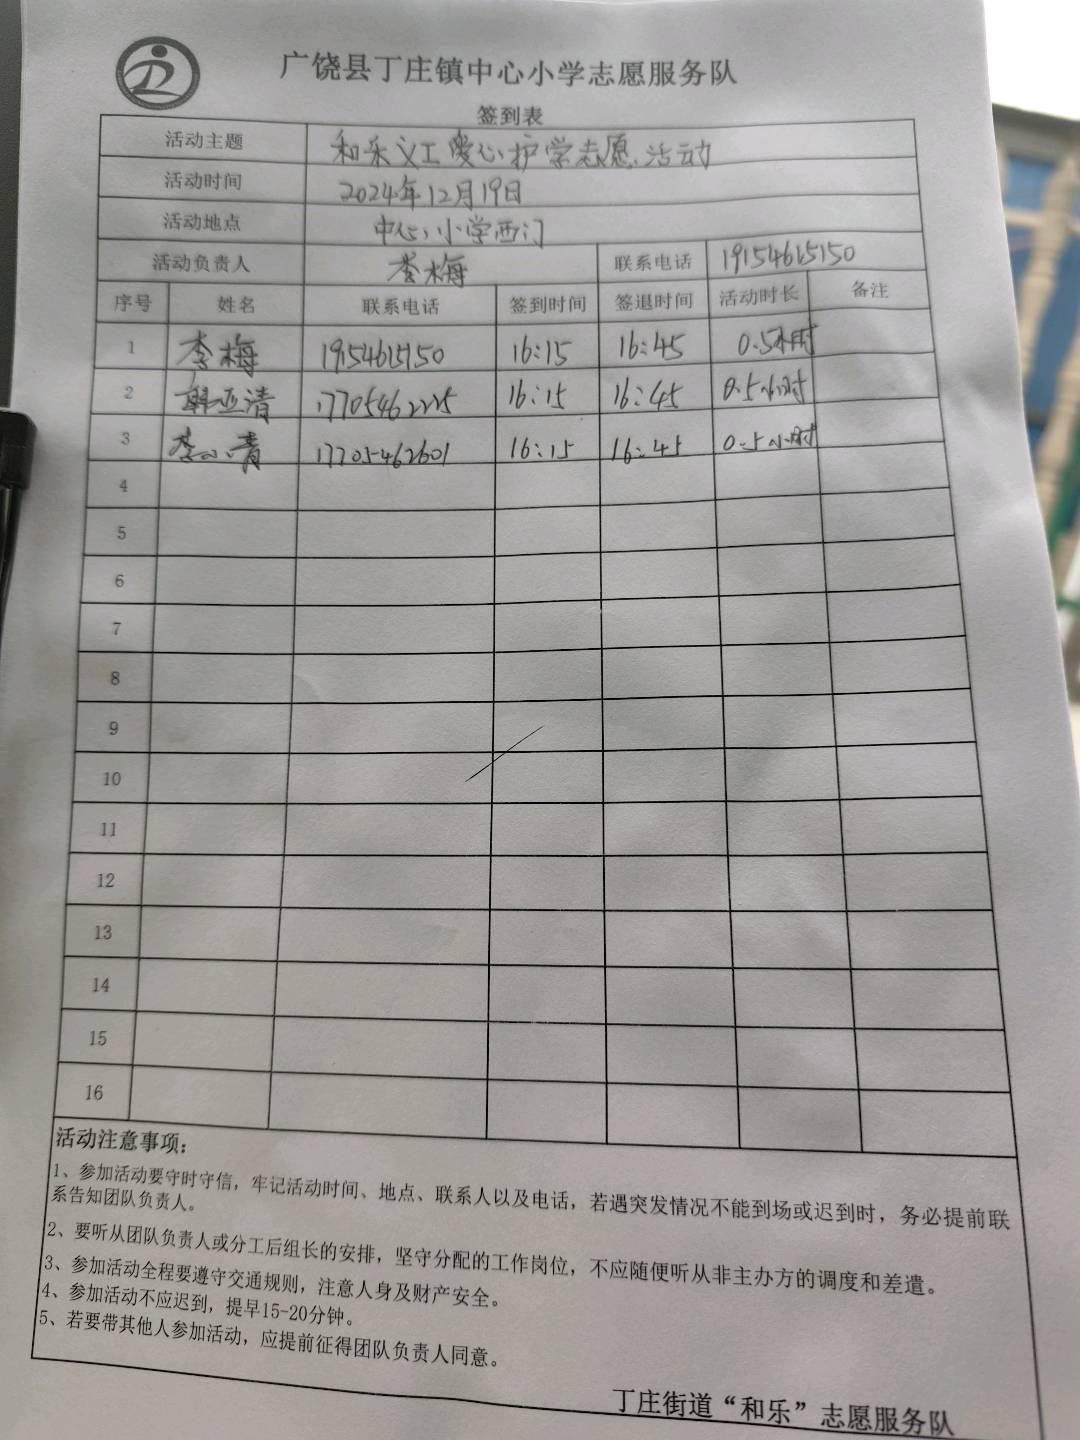 广饶县丁庄镇中心小学志愿服务队
签到表
活动主题 和乐义工爱心护学志愿活动
活动时间 2024年12月19日
活动地点 中心小学西门
活动负责人 李梅 联系电话 19154615150
序号 姓名 联系电话 签到时间 签退时间 活动时长 备注
1 李梅 19154615150 16:15 16:45 0.5小时
2 韩亚清 17705462225 16:15 16:45 0.5小时
3 李小青 17705462601 16:15 16:45 0.5小时
4
5
6
7
8
9
10
11
12
13
14
15
16
活动注意事项：
1、参加活动要守时守信，牢记活动时间、地点、联系人以及电话，若遇突发情况不能到场或迟到时，务必提前联
系告知团队负责人。
2、要听从团队负责人或分工后组长的安排，坚守分配的工作岗位，不应随便听从非主办方的调度和差遣。
3、参加活动全程要遵守交通规则，注意人身及财产安全。
4、参加活动不应迟到，提早15-20分钟。
5、若要带其他人参加活动，应提前征得团队负责人同意。
丁庄街道“和乐”志愿服务队